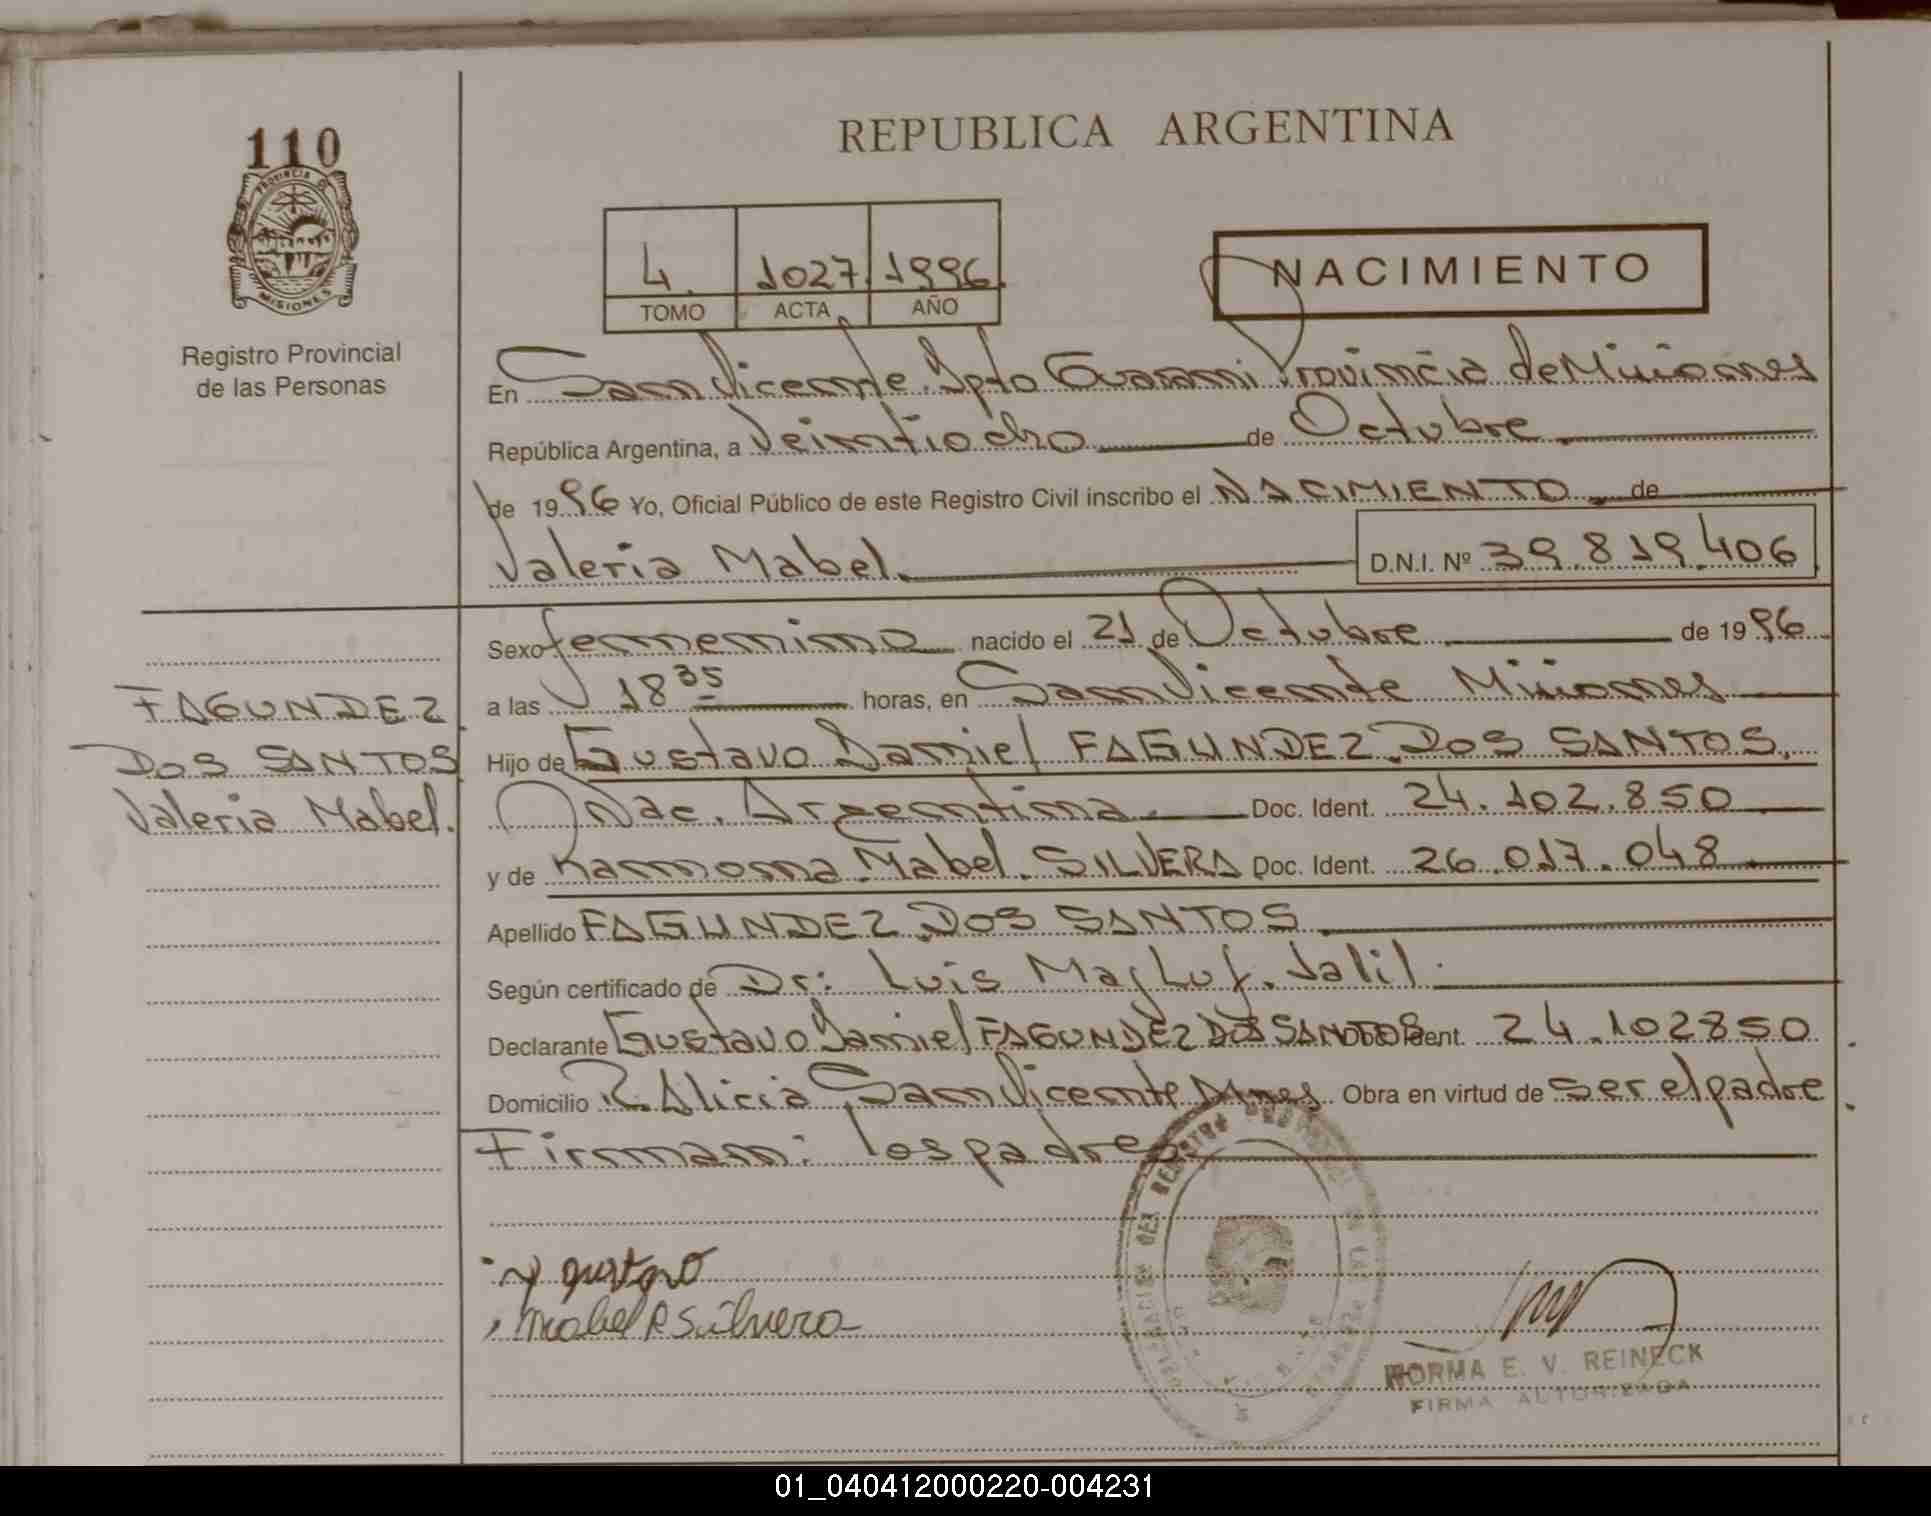 110
PROVINCIA DE
MISIONES
Registro Provincial
de las Personas
REPUBLICA ARGENTINA
4. 1027. 1996.
TOMO ACTA AÑO
NACIMIENTO
En San Vicente. Dpto Guarani Provincia de Misiones
República Argentina, a Veintiocho de Octubre.
de 1996 Yo, Oficial Público de este Registro Civil inscribo el NACIMIENTO. de
Valeria Mabel. D.N.I. Nº 39.819.406
Sexo femenino nacido el 21 de Octubre de 1996
a las 18 35 horas, en San Vicente Misiones
Hijo de Gustavo Daniel FAGUNDEZ DOS SANTOS.
Nac. Argentina. Doc. Ident. 24.102.850
y de Ramona Mabel. SILVERA Doc. Ident. 26.017.048
Apellido FAGUNDEZ DOS SANTOS.
Según certificado de Dr: Luis Masluf. Jalil.
Declarante Gustavo Daniel FAGUNDEZ DOS SANTOS Ident. 24.102850
Domicilio R. Alicia San Vicente Mnes. Obra en virtud de ser el padre
Firman: los padres
FAGUNDEZ
DOS SANTOS
Valeria Mabel.
gustavo
Mabel R Silvera
NORMA E. V. REINECK
FIRMA AUTORIZADA
01_040412000220-004231